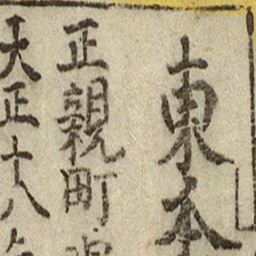 東本
正親町
天正十八年